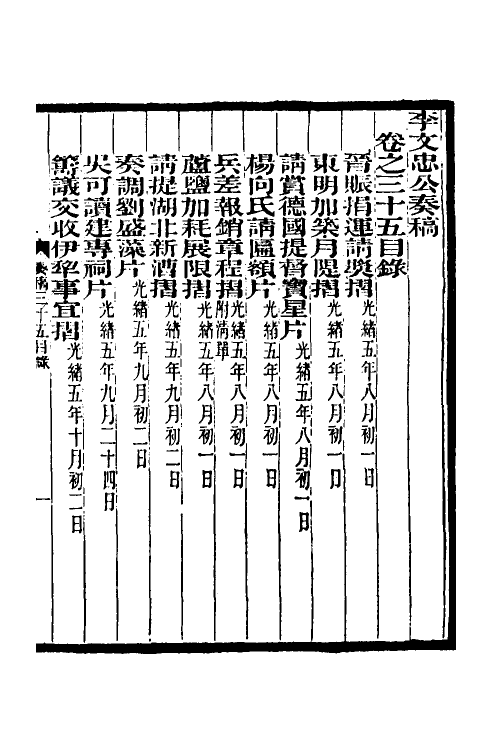 李文忠公奏稿
卷之三十五目錄
晉賑捐運請獎摺光緒五年八月初一日
東明加築月隄摺光緒五年八月初一日
請賞德國提督寶星片光緒五年八月初一日
楊向氏請匾額片光緒五年八月初一日
兵差報銷章程摺附清單光緒五年八月初一日
蘆鹽加耗展限摺光緒五年八月初一日
請提湖北新漕摺光緒五年九月初二日
奏調劉盛藻片光緒五年九月初二日
吳可讀建專祠片光緒五年九月二十四日
籌議交收伊犂事宜摺光緒五年十月初二日
奏稿三十五目錄
一